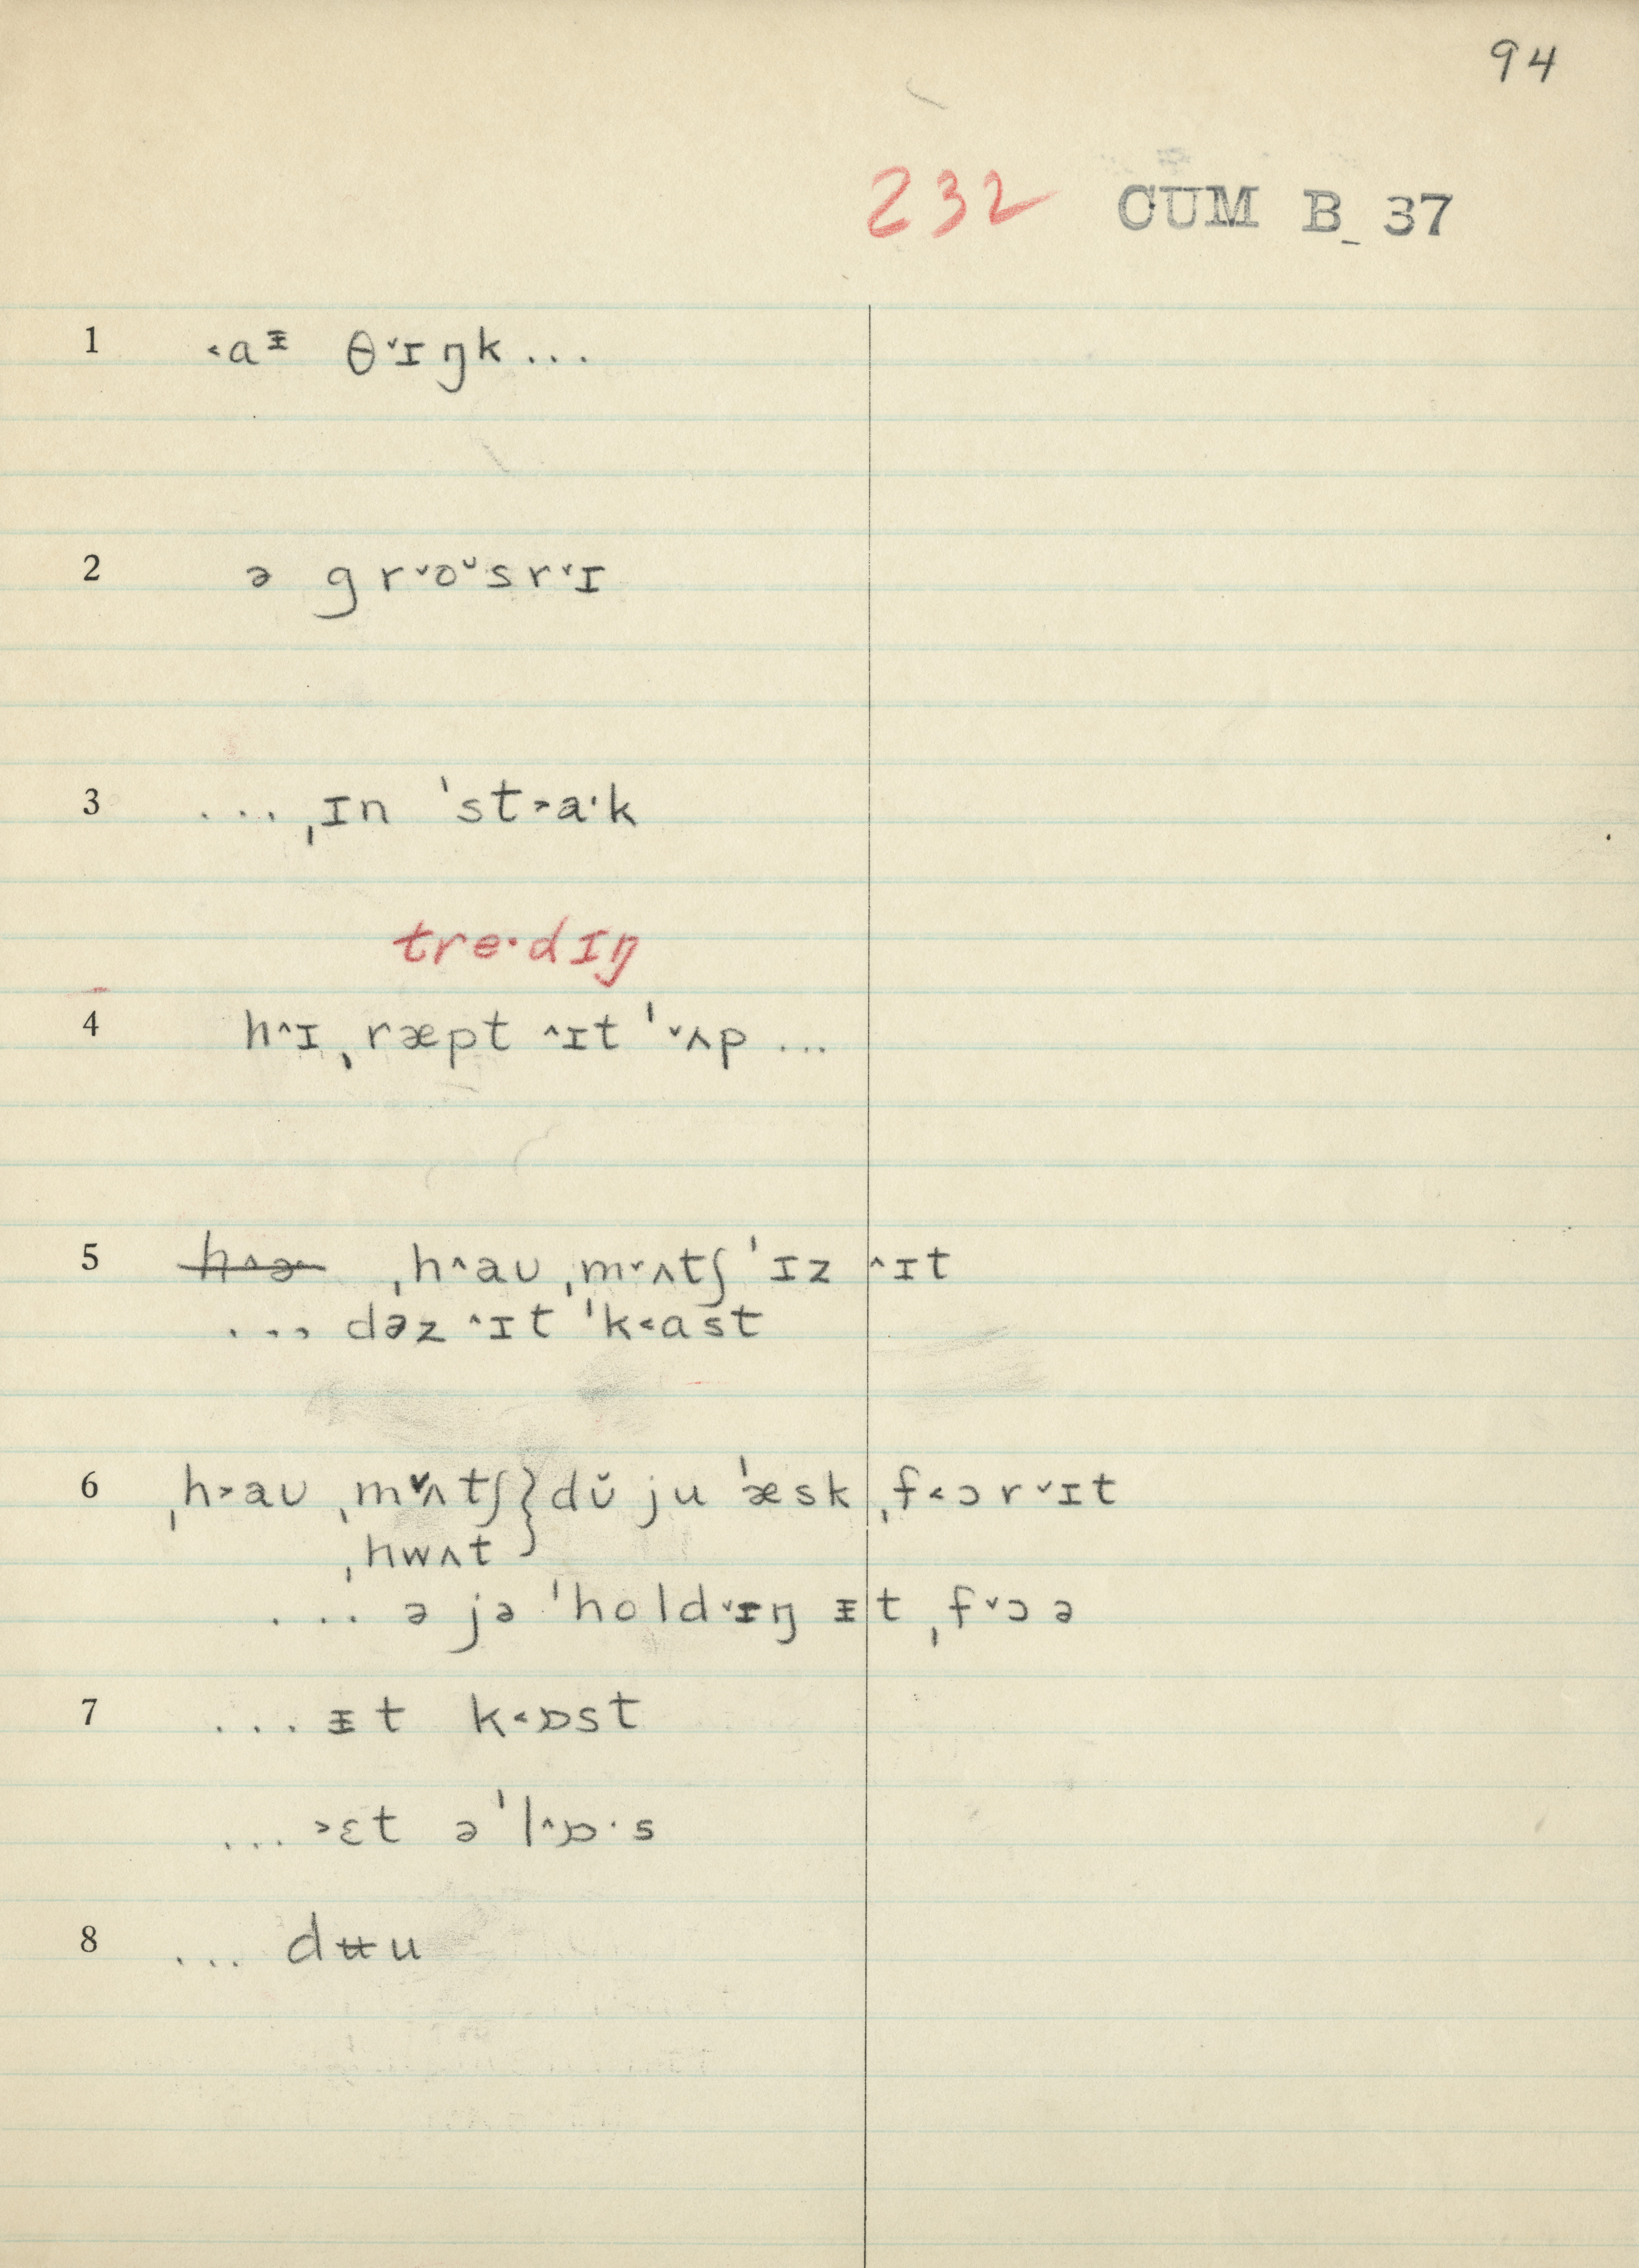 94
232 CUM B_ 37
1 ˂aᵻ θ˅ɪŋk...
2 ə gr˅oᵕsr˅ɪ
3 ... ˌɪn ˈst˃aˑk
tre·dɪŋ
4 h˄ɪ ˌræpt ˄ɪt ˈ˅ʌp ...
5 h˄ə ˌh˄aʊ ˌm˅ʌtʃ ˈɪz ˄ɪt
... dəz ˄ɪt ˈk˂ast
6 ˌh˃aʊ ˌm˅ʌtʃ } dŭ ju ˈæsk ˌf˂ɔr˅ɪt
ˌhwʌt
... ə jə ˈhold˅ɪŋ ᵻt ˌf˅ɔə
7 ... ᵻt k˂ɒst
... ˃ɛt əˈl˄ɒ·s
8 ... dʉu